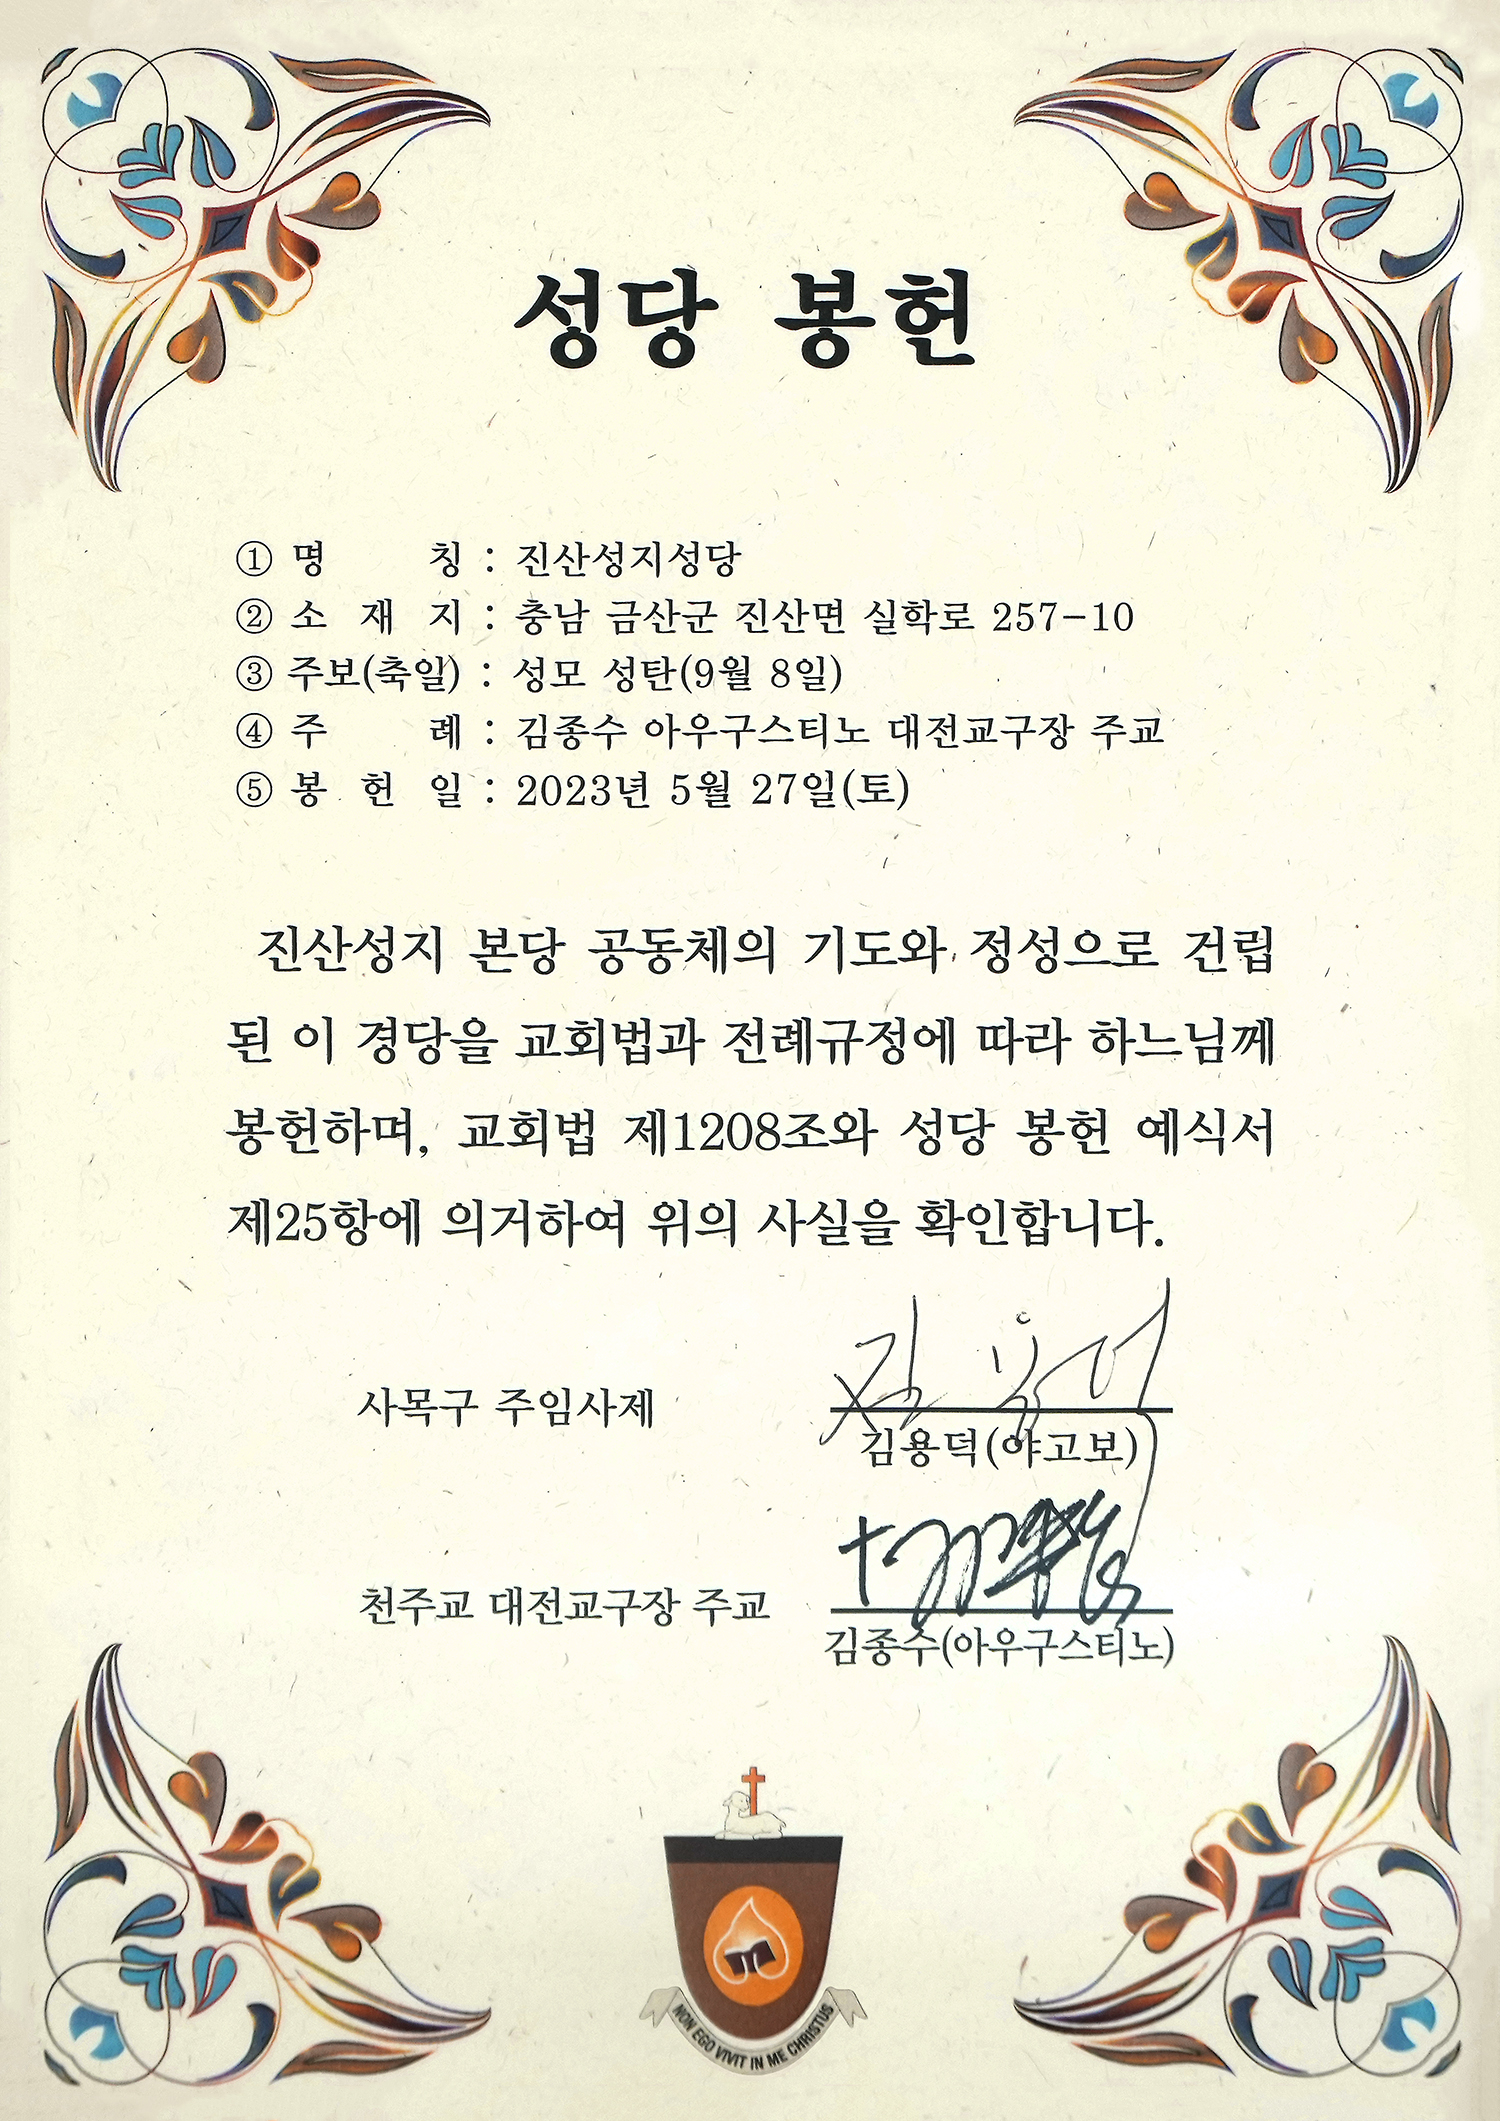 성당 봉헌
① 명 칭 : 진산성지성당
② 소 재 지 : 충남 금산군 진산면 실학로 257-10
③ 주보(축일) : 성모 성탄(9월 8일)
④ 주 례 : 김종수 아우구스티노 대전교구장 주교
⑤ 봉 헌 일 : 2023년 5월 27일(토)
진산성지 본당 공동체의 기도와 정성으로 건립
된 이 경당을 교회법과 전례규정에 따라 하느님께
봉헌하며, 교회법 제1208조와 성당 봉헌 예식서
제25항에 의거하여 위의 사실을 확인합니다.
사목구 주임사제
김용덕(야고보)
천주교 대전교구장 주교
김종수(아우구스티노)
NON EGO VIVIT IN ME CHRISTUS